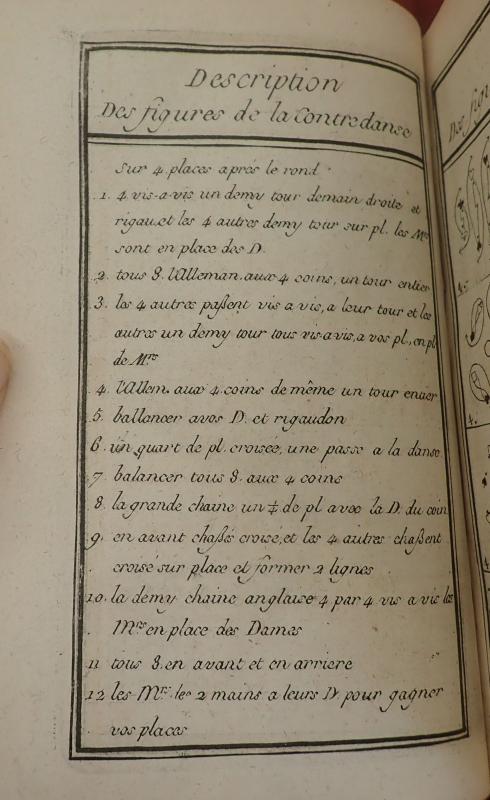 Description
Des figures de la Contredanse
sur 4. places aprés le rond
1. 4. vis-a-vis un demy tour demain droite et
rigau. et les 4 autres demy tour sur pl. les Mrs
sont en place des D.
2. tous 8. l'Alleman. aux 4 coins, un tour entier
3. les 4 autres passent vis a vis, a leur tour et les
autres un demy tour tous vis-a-vis, a vos pl. en pl
de Mrs
4. l'Allem. aux 4. coins de même un tour entier
5. ballancer avos D. et rigaudon
6. un quart de pl. croisée, une passe a la danse
7. balancer tous 8. aux 4 coins
8. la grande chaine un ¼ de pl avec la D. du coin
9. en avant chassés croisé, et les 4 autres chassent
croisé sur place et former 2 lignes
10. la demy chaine anglaise 4 par 4 vis a vis les
Mrs en place des Dames
11 tous 8. en avant et en arriere
12 les Mrs. les 2 mains a leurs D. pour gagner
vos places
Des figu
4.
4.